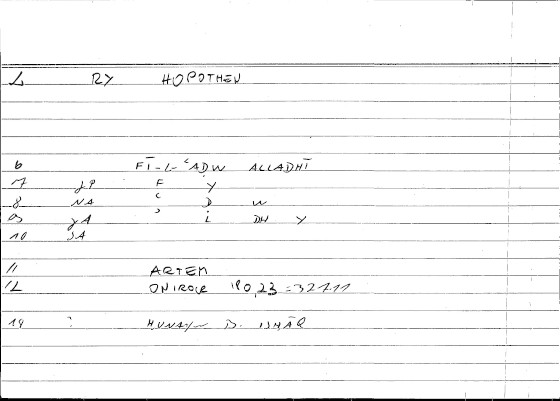 L RY HOPOTHEN
6 FĪ-L-ʿADW ALLADHĪ
7 JP F Y
8 NA ʿ D W
9 JA ʾ L DH Y
10 SA
11 ARTEM
12 ONIROCR 180,23 = 327.11
19 : HUNAYN B. ISHĀQ